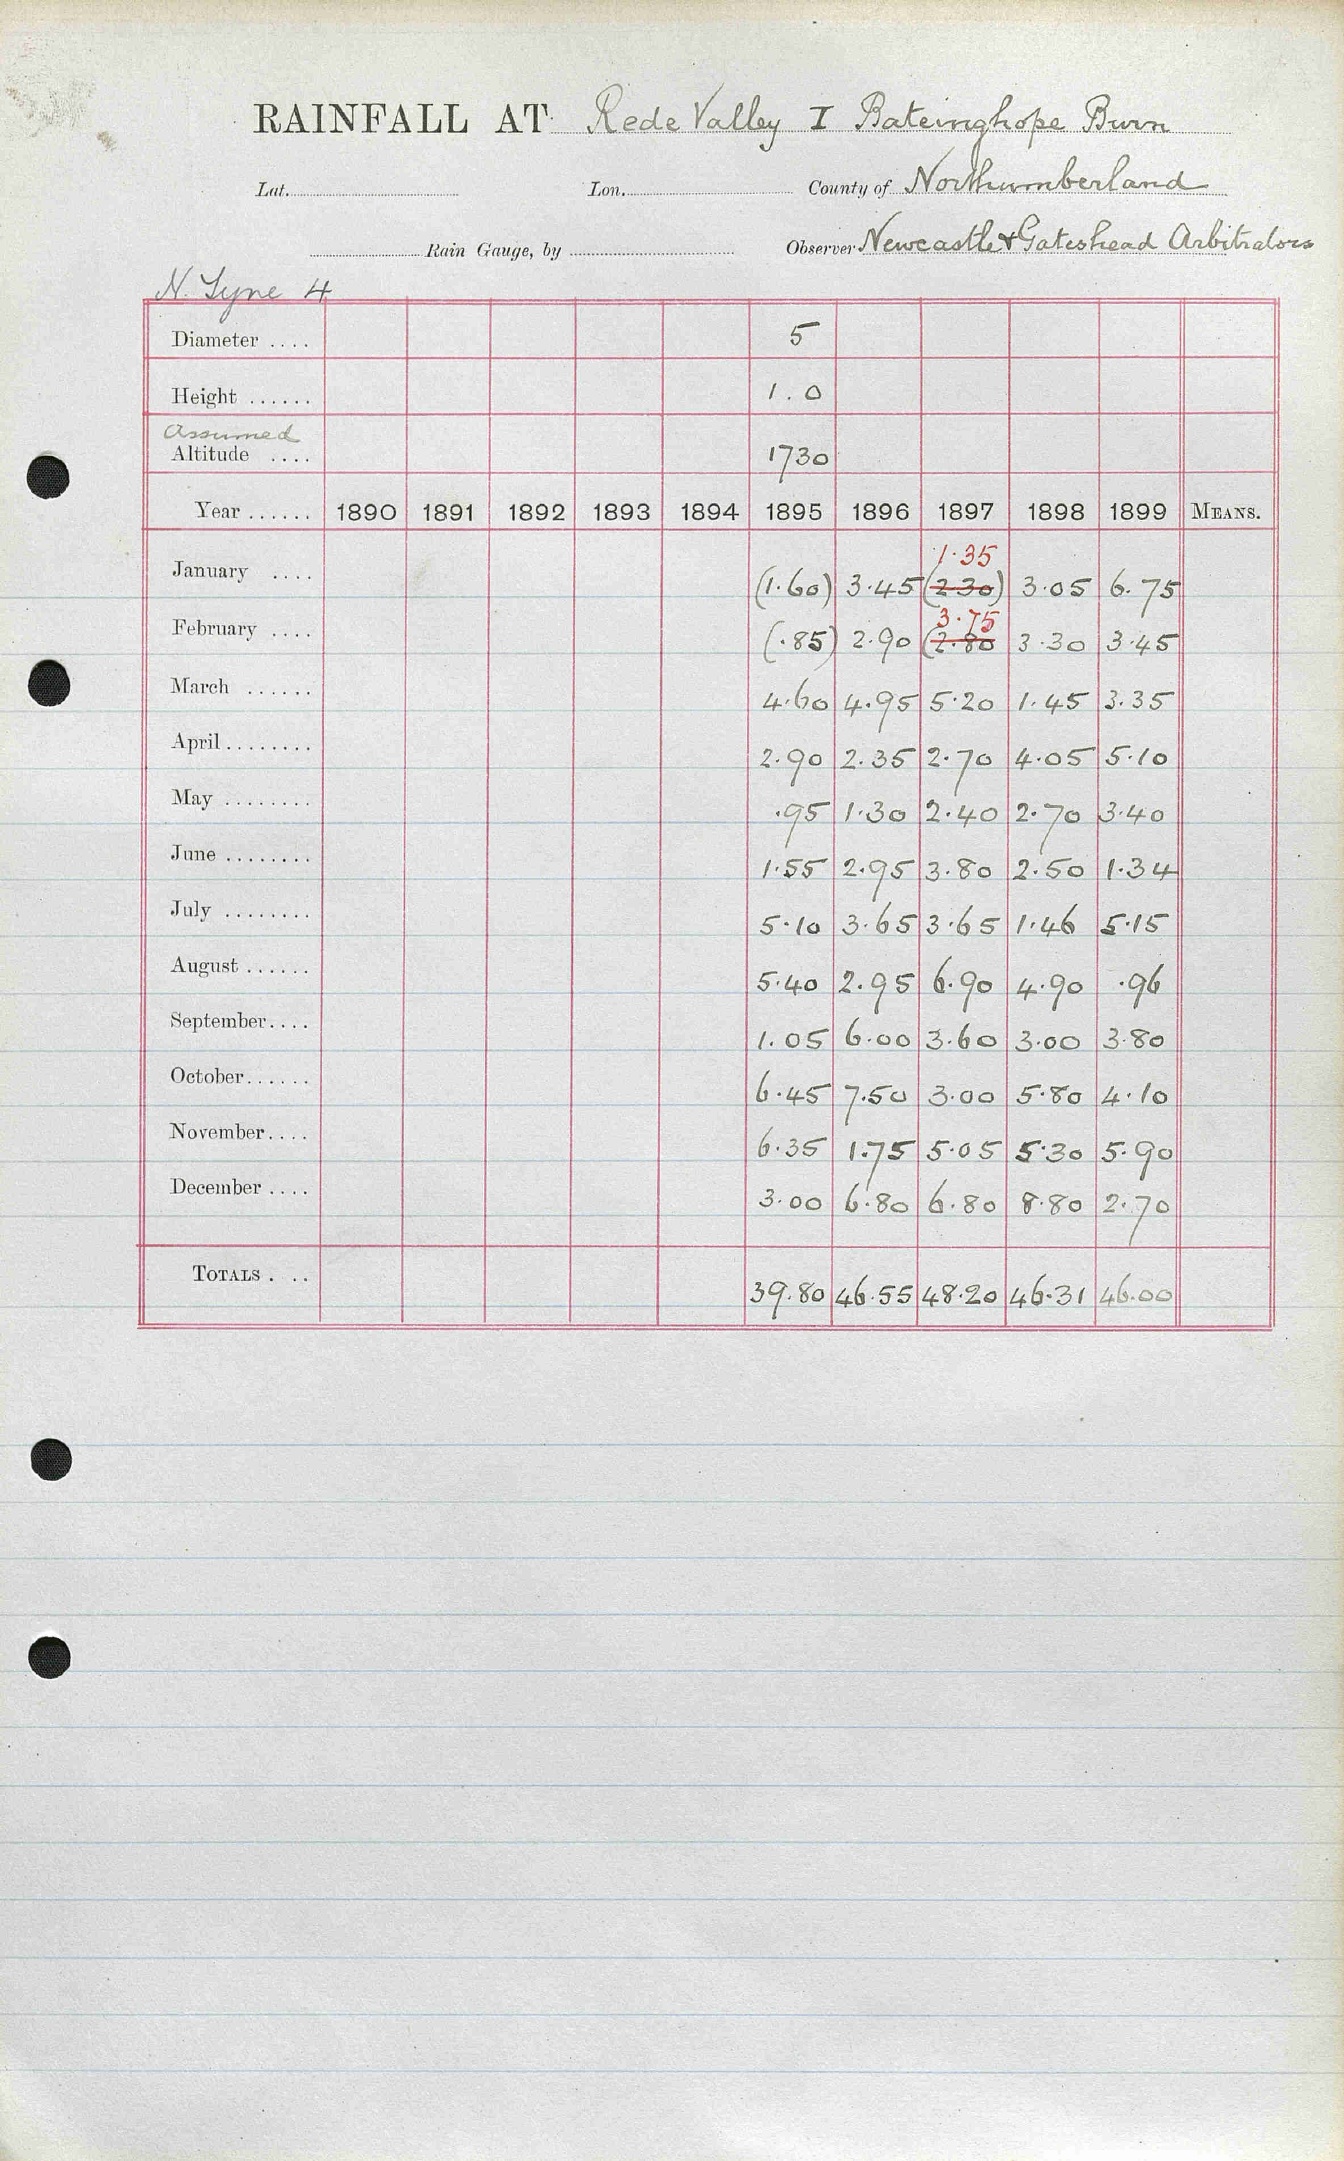 RAINFALL AT Rede Valley I Bateinghope Burn
Lat. Lon. County of Northumberland
Rain Gauge, by Observer Newcastle & Gateshead Arbitrators
N. Tyne 4
Diameter .... 5
Height ...... 1.0
Assumed
Altitude .... 1730
Year ...... 1890 1891 1892 1893 1894 1895 1896 1897 1898 1899 MEANS.
1.35
January .... (1.60) 3.45 (2.30) 3.05 6.75
3.75
February .... (.85) 2.90 (2.80 3.30 3.45
March ...... 4.60 4.95 5.20 1.45 3.35
April ........ 2.90 2.35 2.70 4.05 5.10
May ........ .95 1.30 2.40 2.70 3.40
June ........ 1.55 2.95 3.80 2.50 1.34
July ........ 5.10 3.65 3.65 1.46 5.15
August ...... 5.40 2.95 6.90 4.90 .96
September.... 1.05 6.00 3.60 3.00 3.80
October...... 6.45 7.50 3.00 5.80 4.10
November.... 6.35 1.75 5.05 5.30 5.90
December .... 3.00 6.80 6.80 8.80 2.70
TOTALS . .. 39.80 46.55 48.20 46.31 46.00